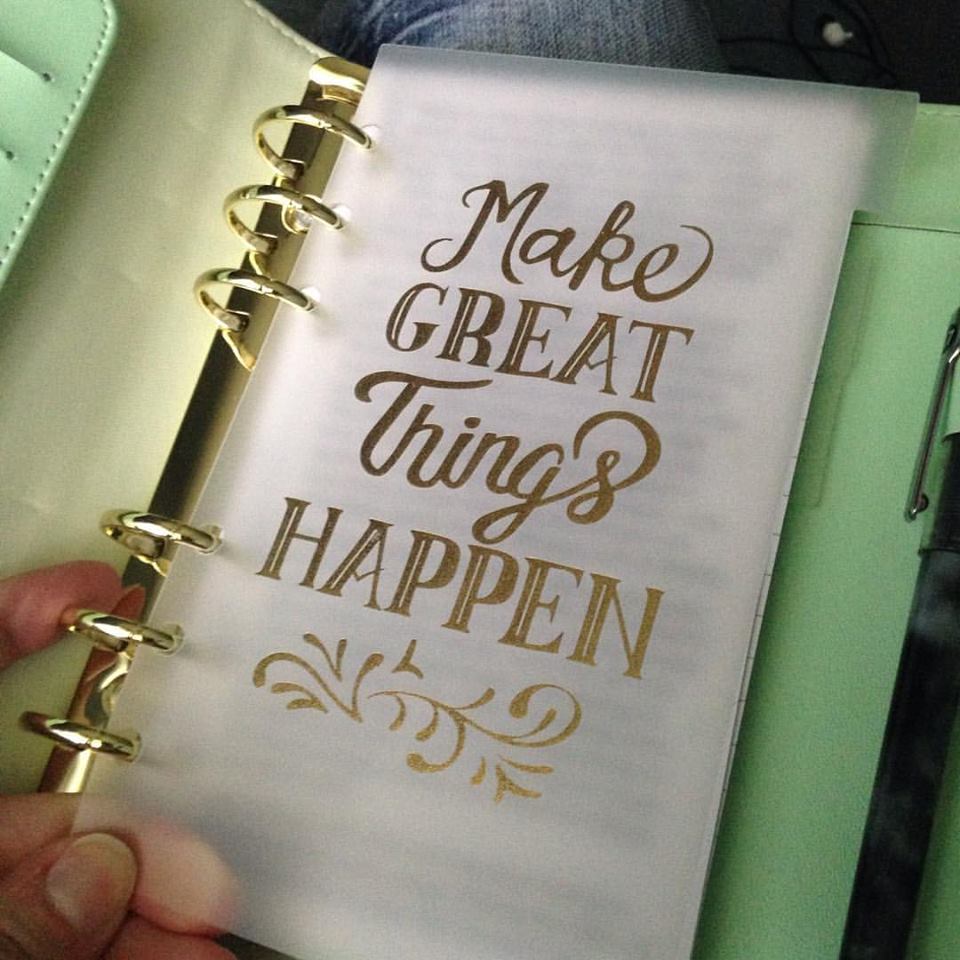 Make
GREAT
Things
HAPPEN